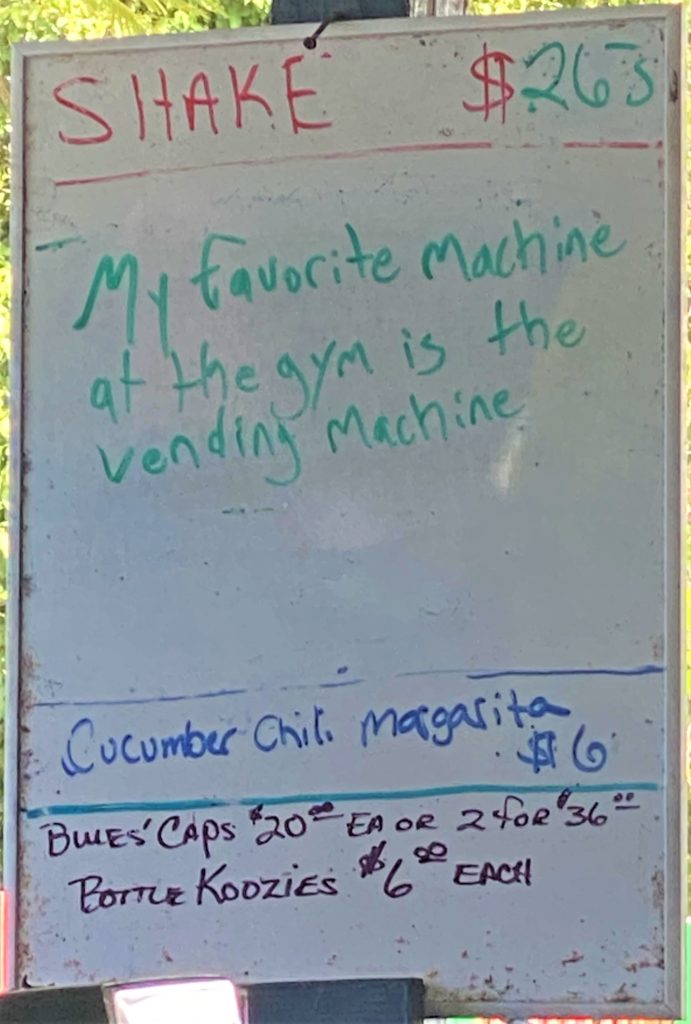 SHAKE $265
My favorite Machine
at the gym is the
vending Machine
Cucumber Chili Margarita
$6
BLUES' CAPS $20.00 EA OR 2 FOR $36.00
BOTTLE KOOZIES $6.00 EACH